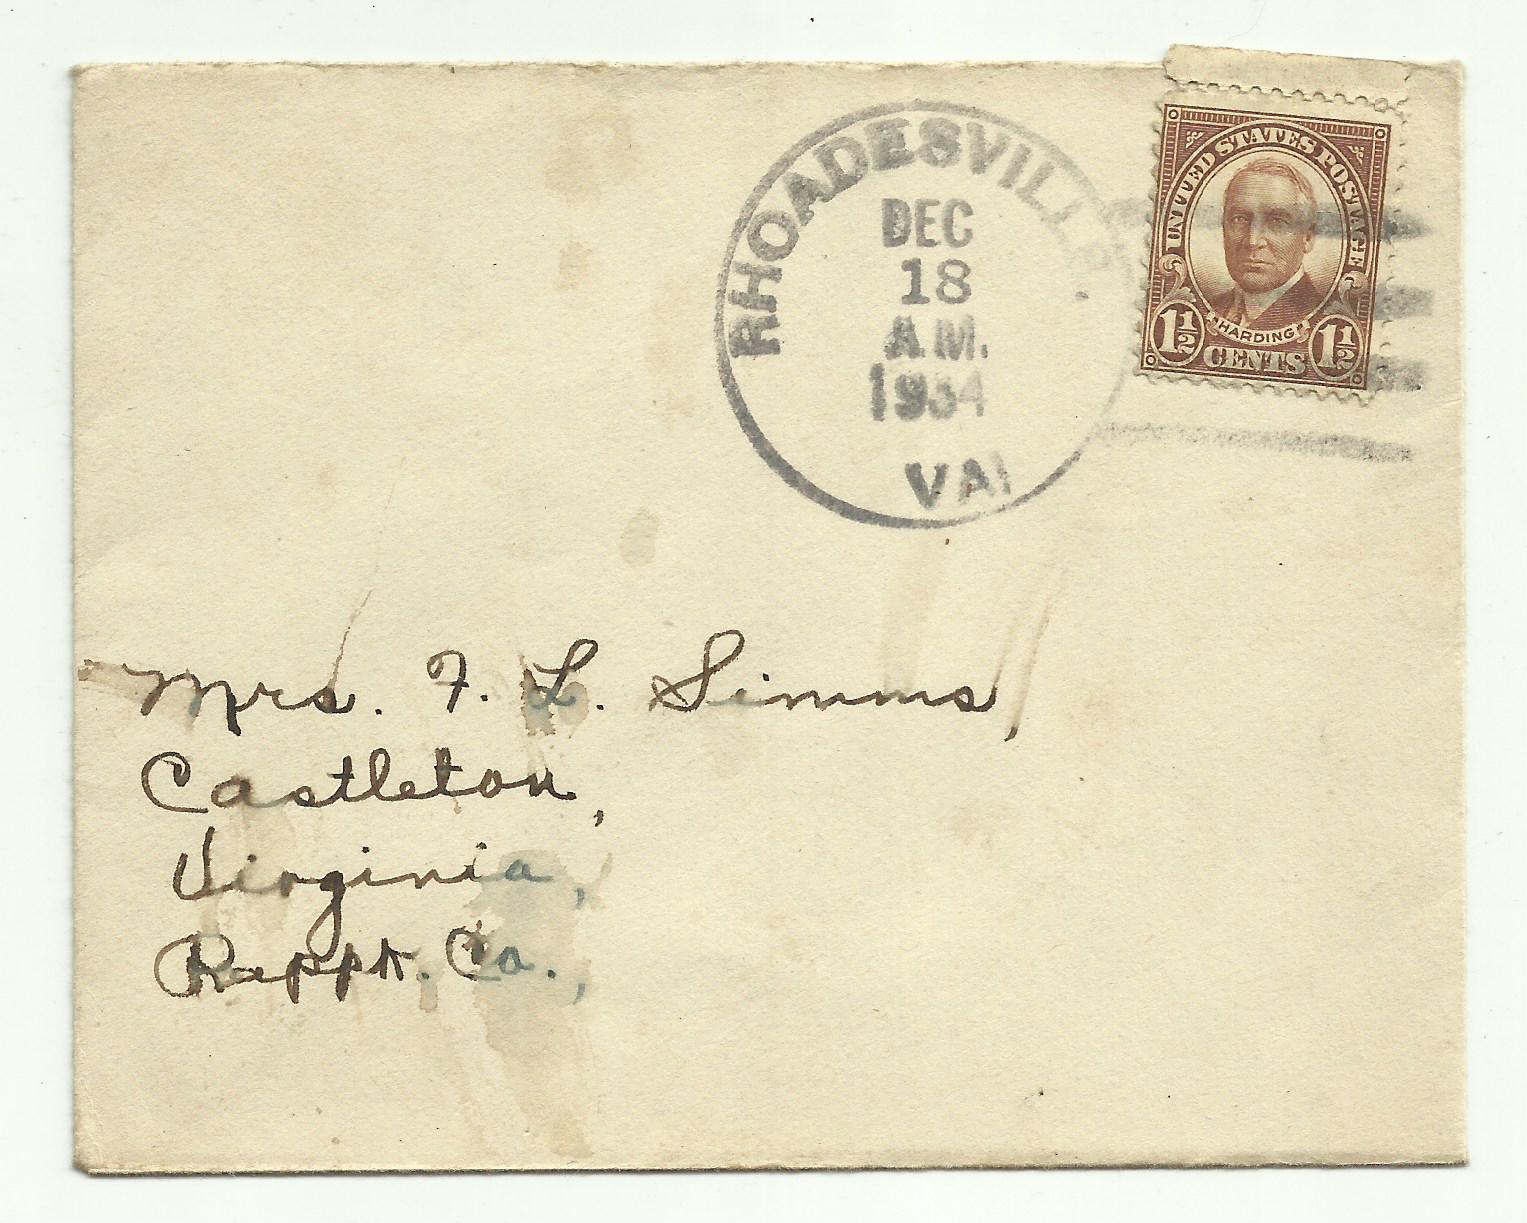 RHOADESVILLE
DEC
18
A.M.
1934
VA.
UNITED STATES POSTAGE
"HARDING"
1½ CENTS 1½
Mrs. F. L. Simms,
Castleton,
Virginia,
Rappk. Co.,